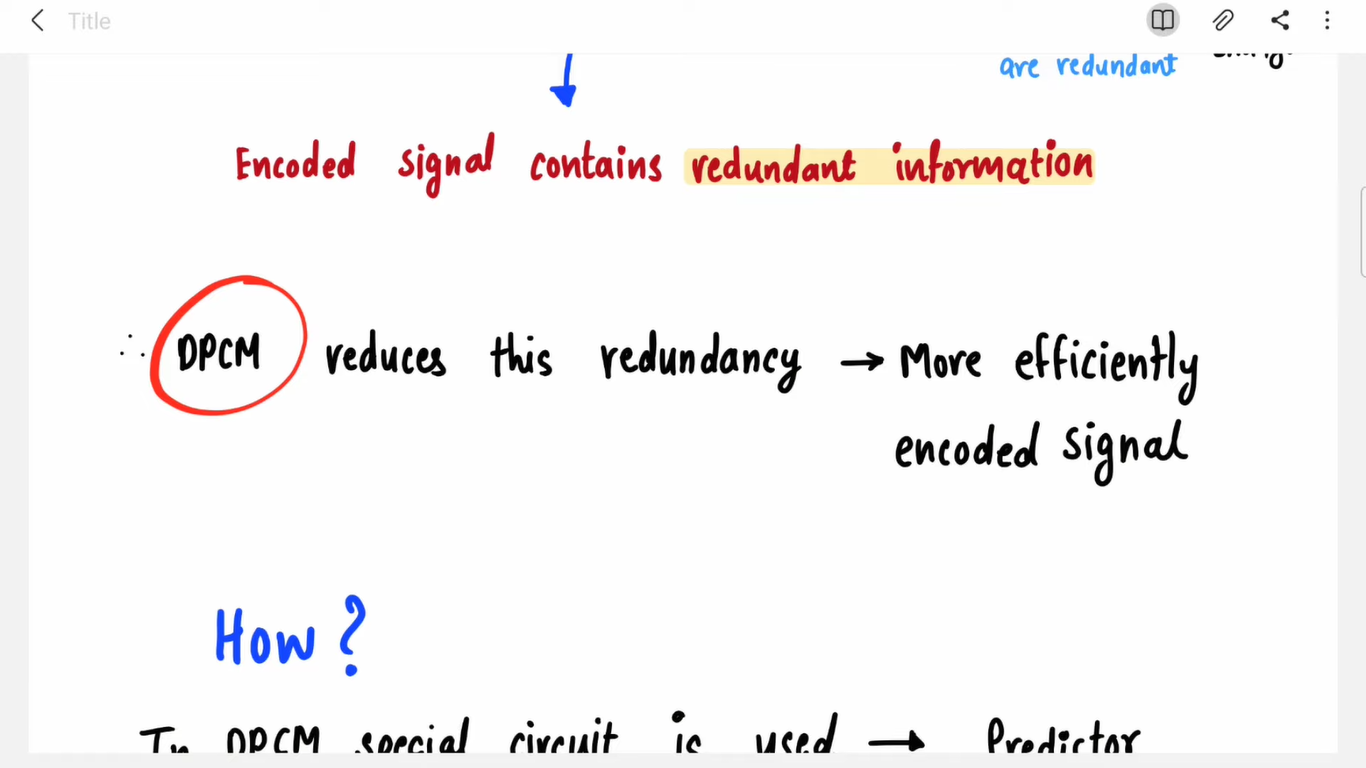 Title
are redundant
Encoded signal contains redundant information
∴ DPCM reduces this redundancy → More efficiently
encoded signal
How?
In DPCM special circuit is used → Predictor